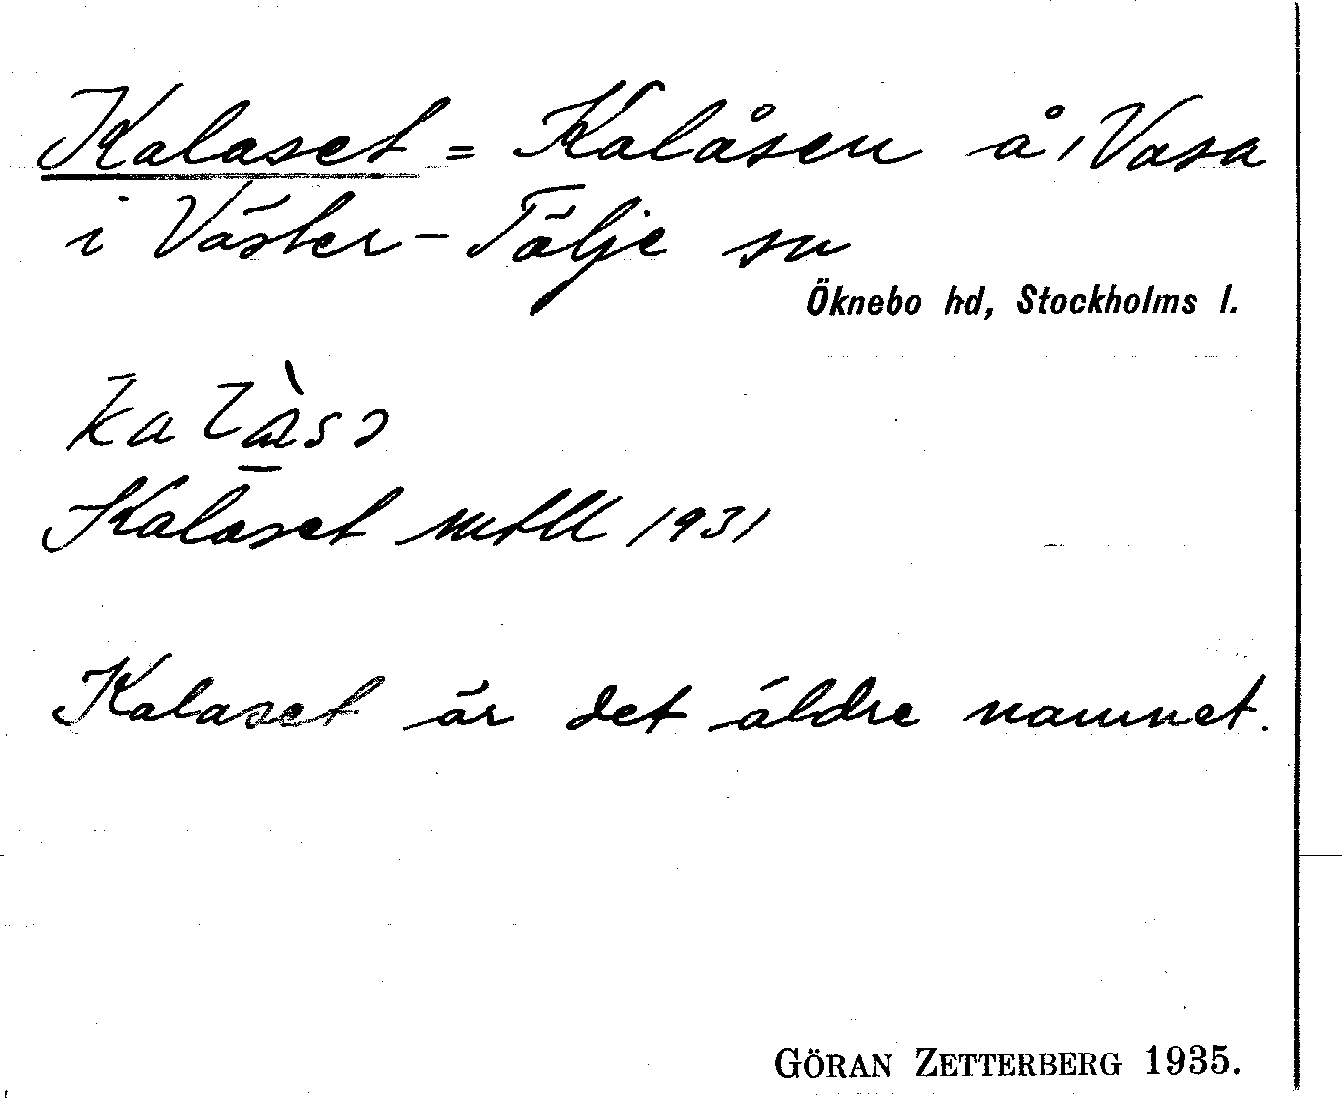 Kalaset = Kalåsen å 1 Vasa
i Väster-Tälje sn
Öknebo hd, Stockholms l.
Kalaset mtll 1931
Kalaset är det äldre namnet.
GÖRAN ZETTERBERG 1935.